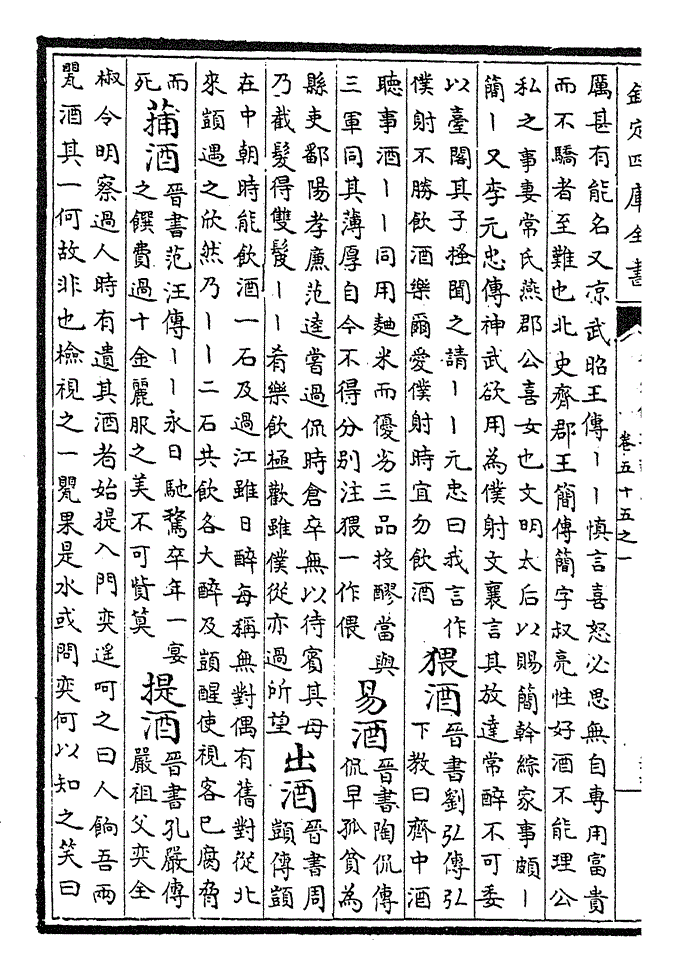 欽定四庫全書
卷五十五之一
厲甚有能名又涼武昭王傳丨丨慎言喜怒必思無自專用富貴
而不驕者至難也北史齊郡王簡傳簡字叔亮性好酒不能理公
私之事妻常氏燕郡公喜女也文明太后以賜簡幹綜家事頗丨
簡丨又李元忠傳神武欲用為僕射文襄言其放達常醉不可委
以臺閣其子搔聞之請丨丨元忠曰我言作
僕射不勝飲酒樂爾愛僕射時宜勿飲酒
猥酒
晉書劉弘傳弘
下教曰齊中酒
聽事酒丨丨同用麯米而優劣三品投醪當與
三軍同其薄厚自今不得分別注猥一作偎
易酒
晉書陶侃傳
侃早孤貧為
縣吏鄱陽孝廉范逵嘗過侃時倉卒無以待賓其母
乃截髮得雙髲丨丨肴樂飲極歡雖僕從亦過所望
出酒
晉書周
顗傳顗
在中朝時能飲酒一石及過江雖日醉每稱無對偶有舊對從北
來顗遇之欣然乃丨丨二石共飲各大醉及顗醒使視客已腐脅
而
死
蒱酒
晉書范汪傳丨丨永日馳騖卒年一宴
之饌費過十金麗服之美不可貲莫
提酒
晉書孔嚴傳
嚴祖父奕全
椒令明察過人時有遺其酒者始提入門奕遥呵之曰人餉吾兩
甖酒其一何故非也檢視之一甖果是水或問奕何以知之笑曰